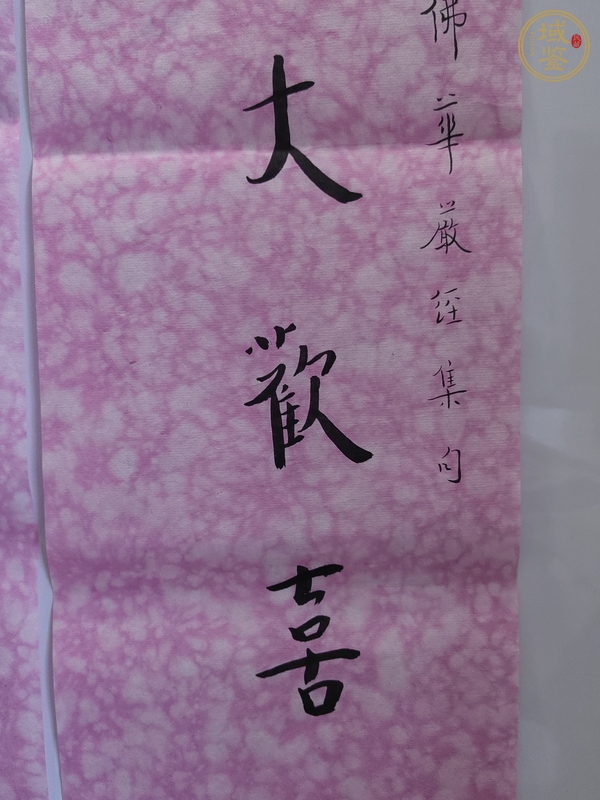 佛華嚴經集句
大歡喜
域鉴